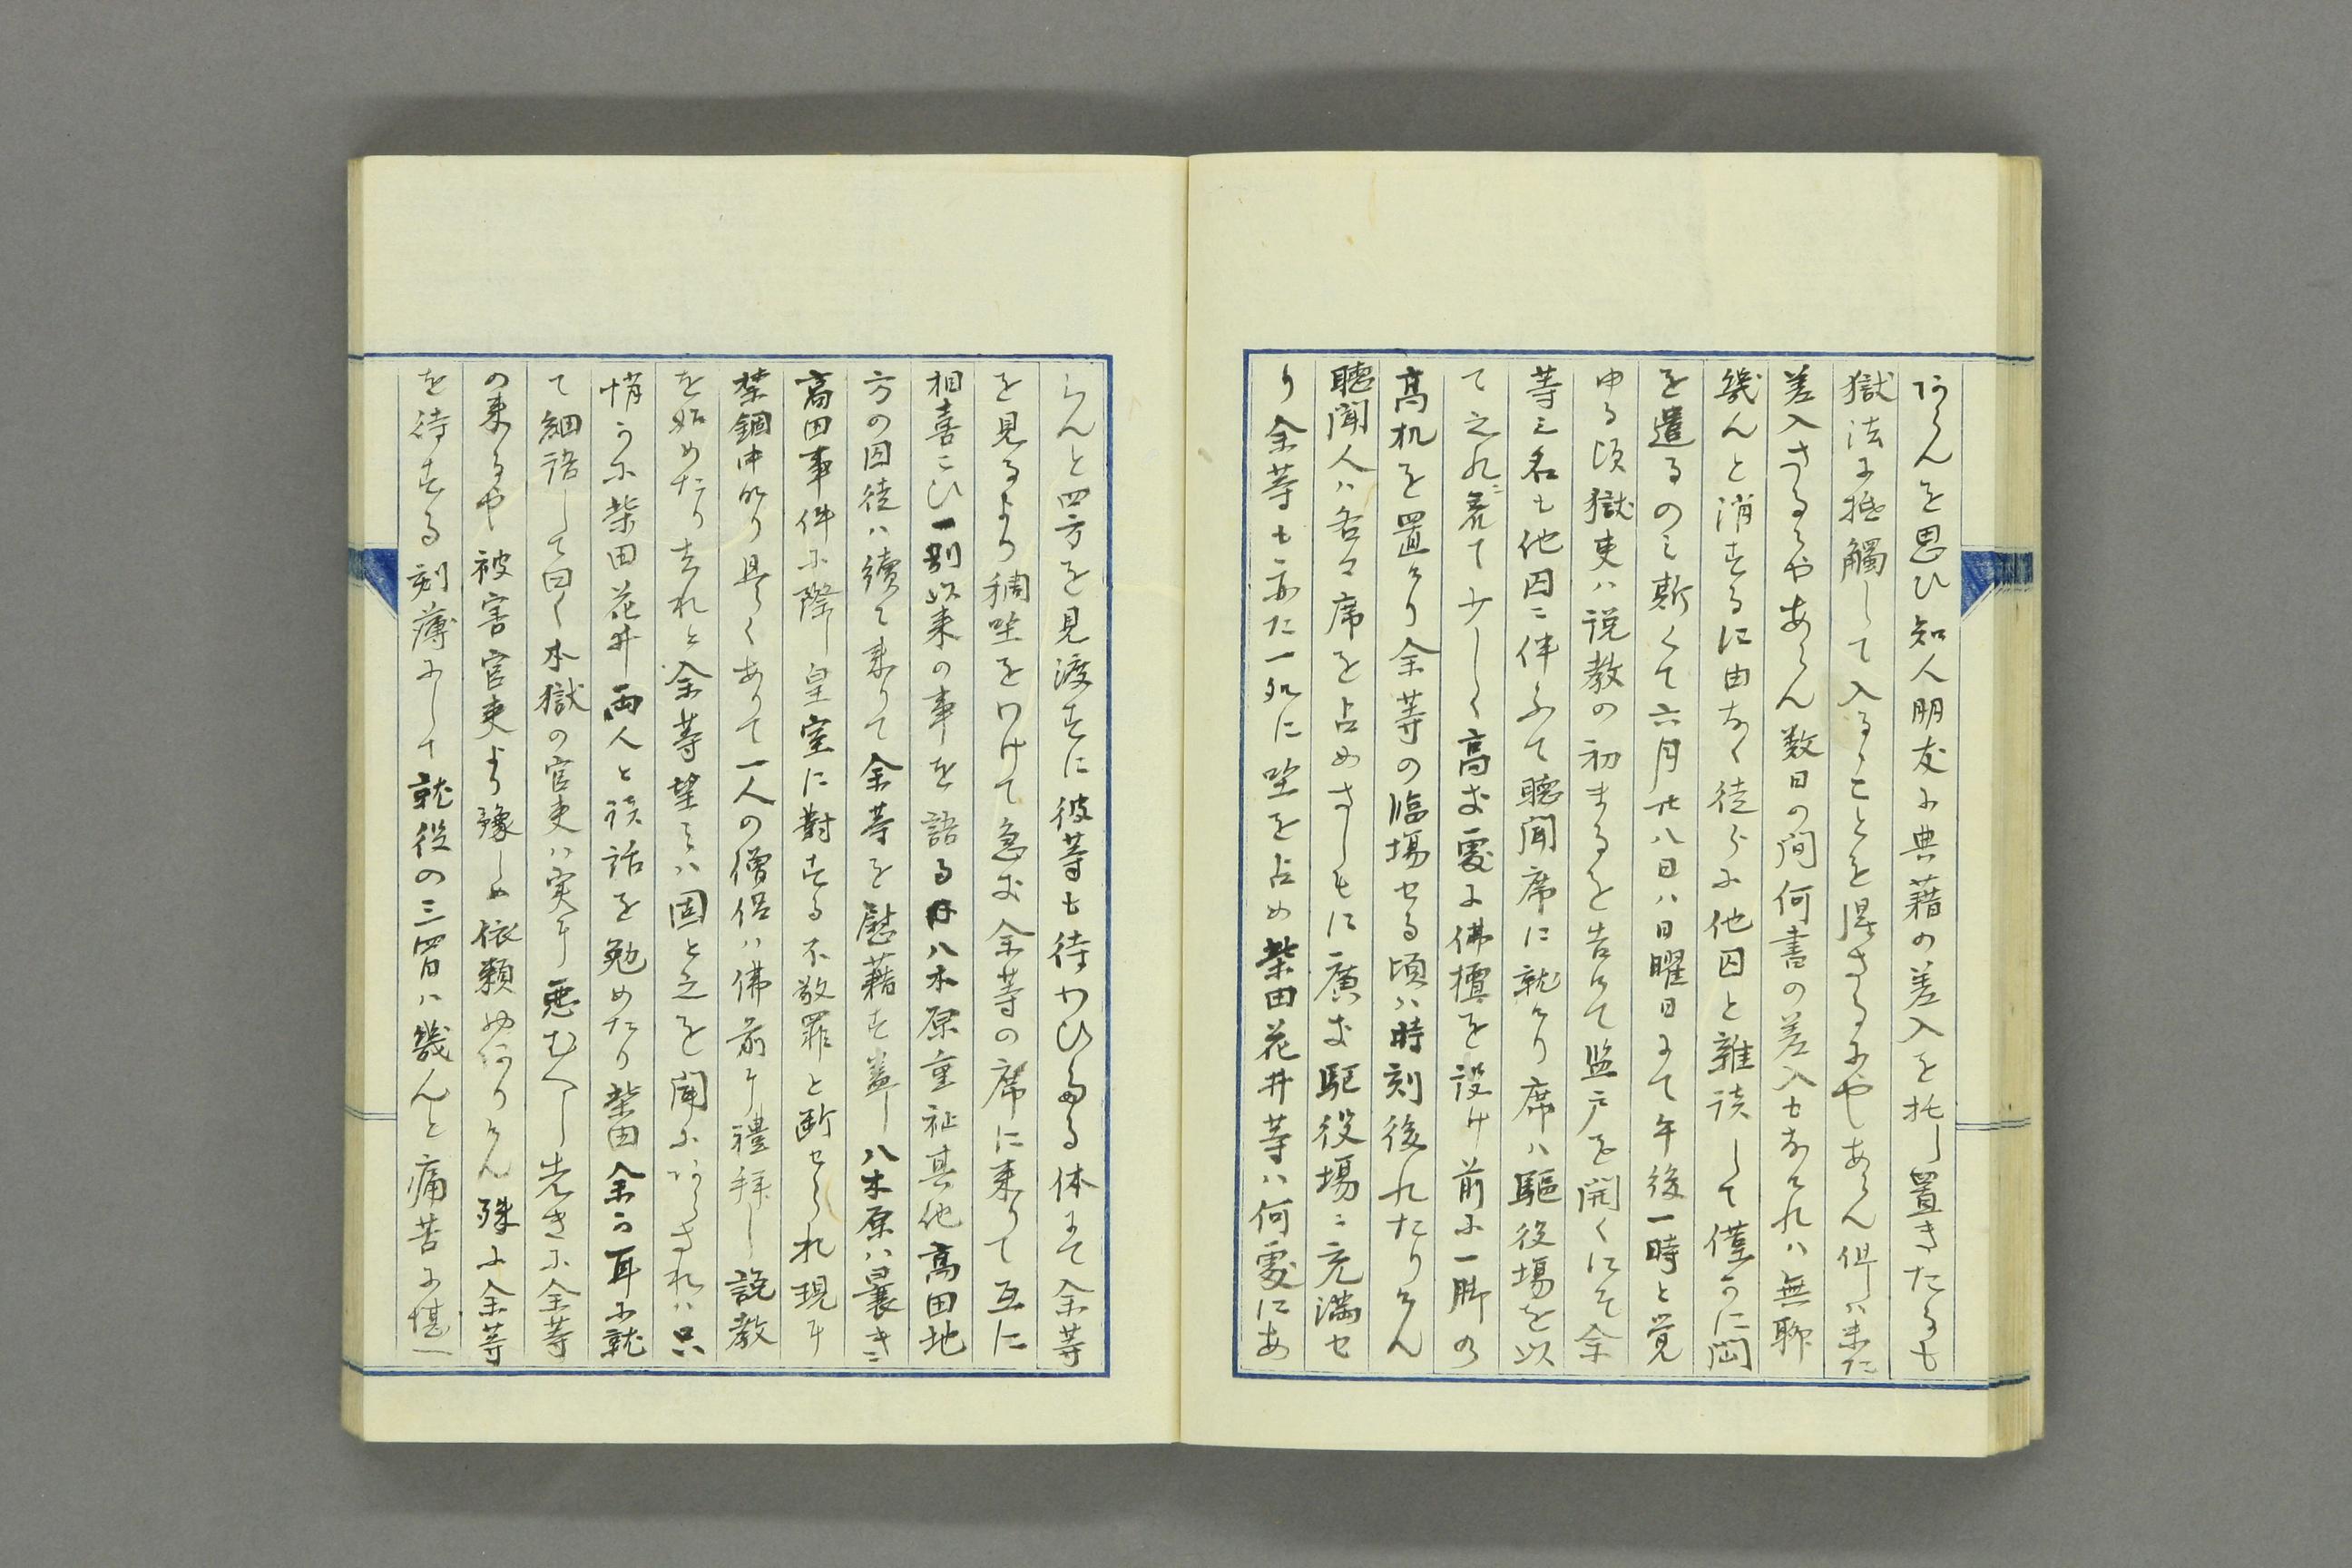 らんを思ひ知人朋友に典藉の差入を托し置きたるも
獄法に抵觸して入るゝことを得さるにやあらん但ハ未た
差入さるにやあらん数日の間何書の差入もなけれハ無聊
幾んと消するに由なく徒らに他囚と雜談して僅かに悶
を遣るのミ斯くて六月廿八日ハ日曜日にて午後一時と覚
ゆる頃獄吏ハ説教の初まるを告けて監戸を開くにそ余
等三名も他囚ニ伴ふて聽聞席に就けり席ハ驅役場を以
て之れニ充て少しく高き處に佛檀を設け前に一脚の
高机を置けり余等の臨場せる頃ハ時刻後れたりけん
聽聞人ハ各々席を占めさしもに廣き駆役場ニ充満せ
り余等も亦た一処に坐を占め柴田花井等ハ何處にあ
らんと四方を見渡すに彼等も待わひたる体にて余等
を見るより稠坐をわけて急き余等の席に来りて互に
相喜こひ一別以来の事を語る八木原重祉其他高田地
方の囚徒ハ續て来りて余等を慰藉す蓋し八木原ハ曩きニ
高田事件に際し皇室に對する不敬罪と断せられ現ニ
禁錮中なり且くありて一人の僧侶ハ佛前ニ禮拝し説教
を始めたり去れと余等望ミハ固と之を聞にあらされハ只
悄かに柴田花井両人と談話を勉めたり柴田余か耳に就
て細語して曰く本獄の官吏ハ実ニ悪むへし先きに余等
の来るや被害官吏より豫しめ依頼やありけん殊に余等
を待する刻薄にして就役の三四日ハ幾んと痛苦に堪へ